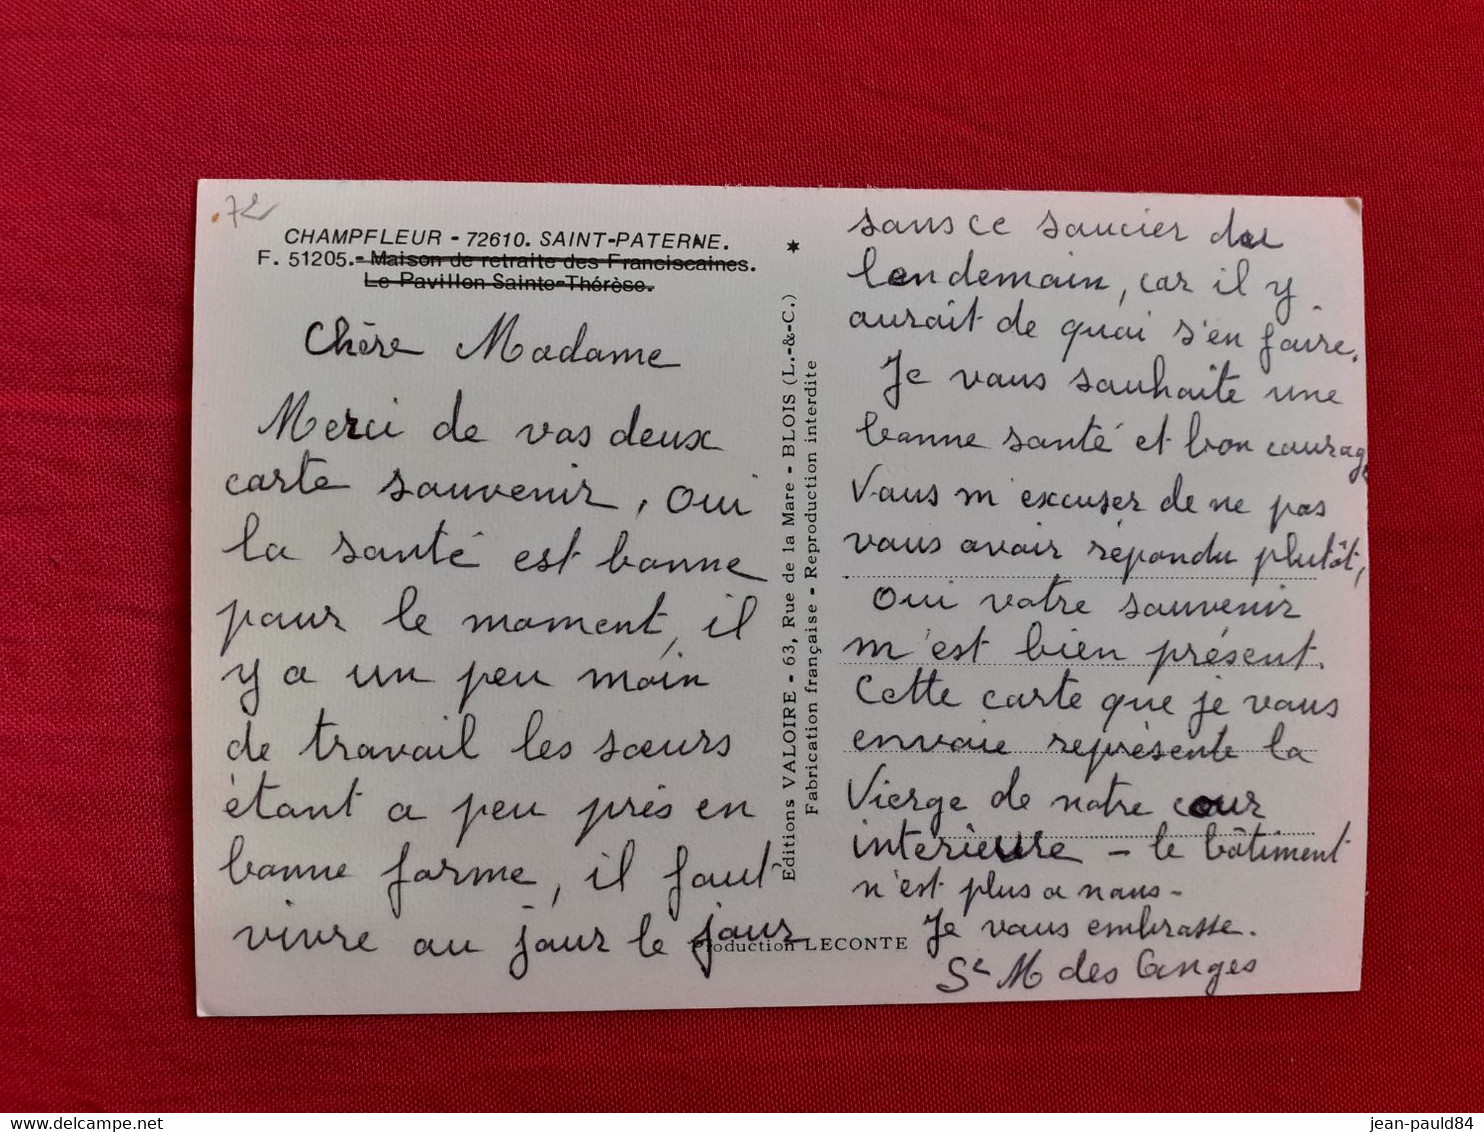 72
CHAMPFLEUR - 72610. SAINT-PATERNE.
F. 51205.- Maison de retraite des Franciscaines.
Le Pavillon Sainte-Thérèse.
Chère Madame
Merci de vos deux
carte souvenir, oui
la santé est bonne
pour le moment, il
y a un peu moin
de travail les sœurs
étant a peu près en
bonne forme, il faut
vivre au jour le jour
Production LECONTE
Editions VALOIRE - 63, Rue de la Mare - BLOIS (L.-&-C.)
Fabrication française - Reproduction interdite
sans ce soucier du
lendemain, car il y
aurait de quoi s'en faire.
Je vous souhaite une
bonne santé et bon courage
Vous m'excuser de ne pas
vous avoir répondu plutôt,
Oui votre souvenir
m'est bien présent.
Cette carte que je vous
envoie représente la
Vierge de notre cour
interieure - le bâtiment
n'est plus a nous -
Je vous embrasse.
Sr M des Anges
jean-pauld84